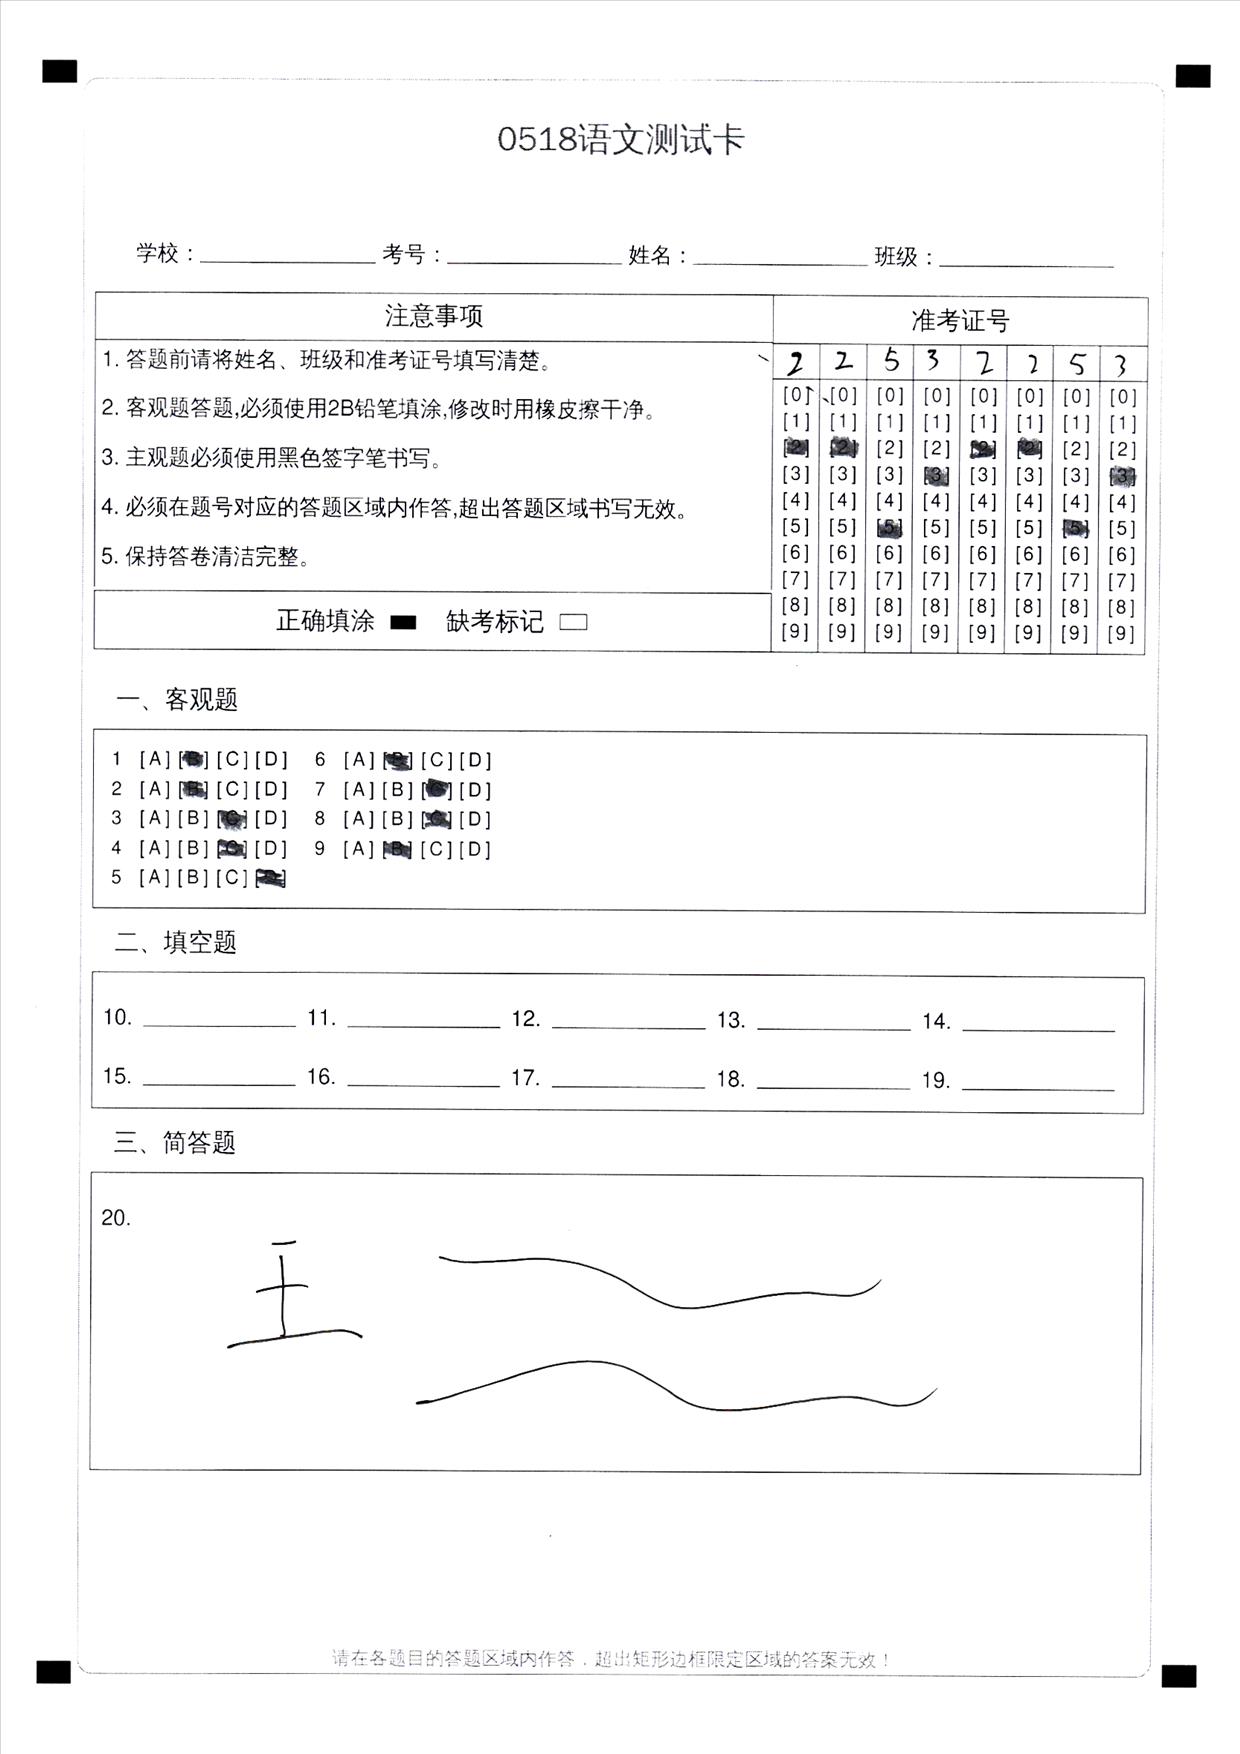 0518语文测试卡
学校：____________ 考号：____________ 姓名：____________ 班级：____________
注意事项 准考证号
1. 答题前请将姓名、班级和准考证号填写清楚。
2. 客观题答题,必须使用2B铅笔填涂,修改时用橡皮擦干净。
3. 主观题必须使用黑色签字笔书写。
4. 必须在题号对应的答题区域内作答,超出答题区域书写无效。
5. 保持答卷清洁完整。
正确填涂 缺考标记
2 2 5 3 2 2 5 3
[0] [0] [0] [0] [0] [0] [0] [0]
[1] [1] [1] [1] [1] [1] [1] [1]
[2] [2] [2] [2] [2] [2] [2] [2]
[3] [3] [3] [3] [3] [3] [3] [3]
[4] [4] [4] [4] [4] [4] [4] [4]
[5] [5] [5] [5] [5] [5] [5] [5]
[6] [6] [6] [6] [6] [6] [6] [6]
[7] [7] [7] [7] [7] [7] [7] [7]
[8] [8] [8] [8] [8] [8] [8] [8]
[9] [9] [9] [9] [9] [9] [9] [9]
一、客观题
1 [A] [B] [C] [D] 6 [A] [B] [C] [D]
2 [A] [B] [C] [D] 7 [A] [B] [C] [D]
3 [A] [B] [C] [D] 8 [A] [B] [C] [D]
4 [A] [B] [C] [D] 9 [A] [B] [C] [D]
5 [A] [B] [C] [D]
二、填空题
10. ____________ 11. ____________ 12. ____________ 13. ____________ 14. ____________
15. ____________ 16. ____________ 17. ____________ 18. ____________ 19. ____________
三、简答题
20.
王
请在各题目的答题区域内作答，超出矩形边框限定区域的答案无效！